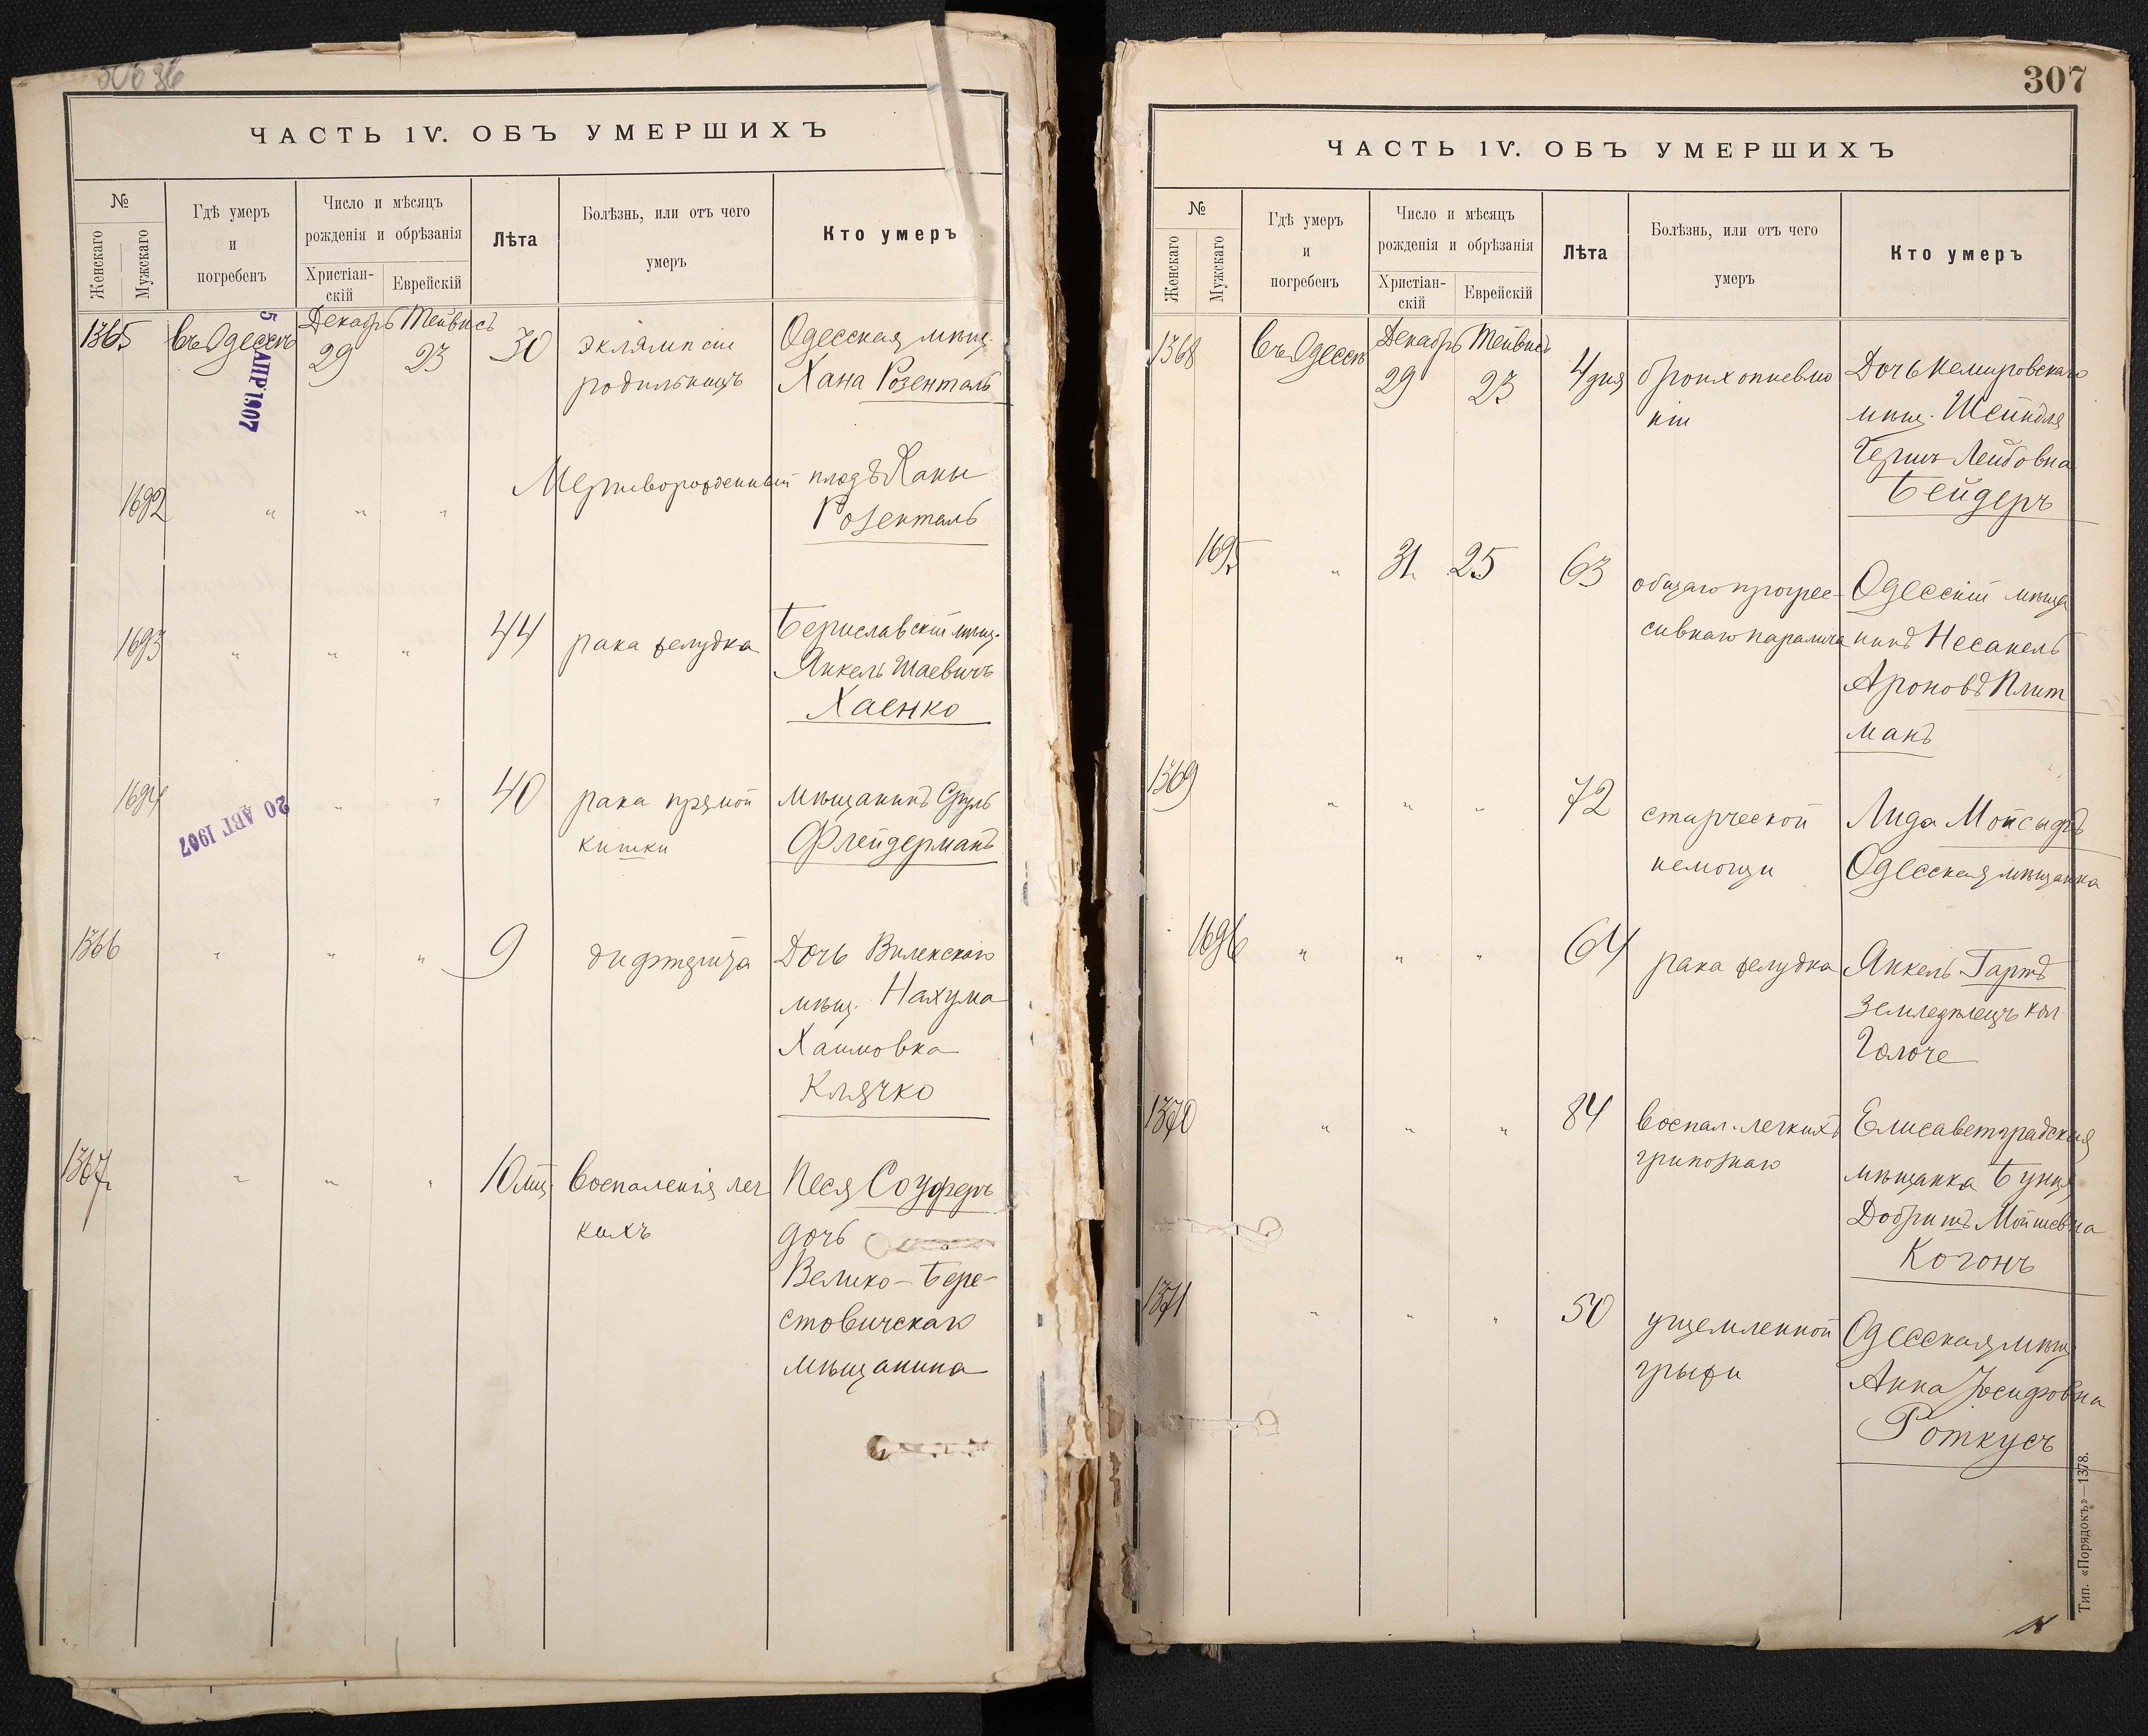 ЧАСТЬ 1V. ОБЪ УМЕРШИХЪ
№
Женскаго
Мужскаго
Гдѣ умеръ
и
погребенъ
Число и мѣсяцъ
рожденія и обрѣзанія
Христіан-
скій
Еврейскій
Лѣта
Болѣзнь, или отъ чего
умеръ
Кто умеръ
5 АПР 1907
1365 въ Одессѣ Декабрь 29 Тейвисъ 23 30 эклямпсіи Одесская мѣщ.
родильницъ Хана Розенталь
1692 " " " Мертворожденный плодъ Ханы
Розенталь
1693 " " " 44 рака желудка Бериславскій мѣщ.
Янкель Шаевичъ
Хаенко
1694 " " 40 рака прямой мѣщанинъ Сруль
кишки Флейдерманъ
20 АВГ 1907
1366 " " " 9 дифтерита Дочь Виленскаго
мѣщ. Нахума
Хаимовна
Клячко
1367 " " " 10 мѣс. воспаленія лег Песя Соуферъ
кихъ дочь
Велико-Бере-
стовичскаго
мѣщанина
307
ЧАСТЬ 1V. ОБЪ УМЕРШИХЪ
№
Женскаго
Мужскаго
Гдѣ умеръ
и
погребенъ
Число и мѣсяцъ
рожденія и обрѣзанія
Христіан-
скій
Еврейскій
Лѣта
Болѣзнь, или отъ чего
умеръ
Кто умеръ
1368 въ Одессѣ Декабрь 29 Тейвисъ 23 4 дня бронхопневмо Дочь Немировскаго
ніи мѣщ. Шейндля
Гершъ Лейбовна
Бейдеръ
1695 " 31 25 63 общаго прогрес- Одесскій мѣща
сивнаго паралича нинъ Несанель
Ароновъ Плит
манъ
1369 " " " 72 старческой Лида Мойсыфъ
немощи Одесская мѣщанка
1696 " " " 64 рака желудка Янкель Гартъ
земледѣлецъ кол.
1370 " " " 84 воспал. легкихъ Елисаветградская
грипознаго мѣщанка Бунця
Добришъ Мойшевна
Когонъ
1371 " " " 50 ущемленной Одесская мѣщ
грыжи Анна Іосифовна
Роткусъ
Тип. «Порядокъ»—1378.